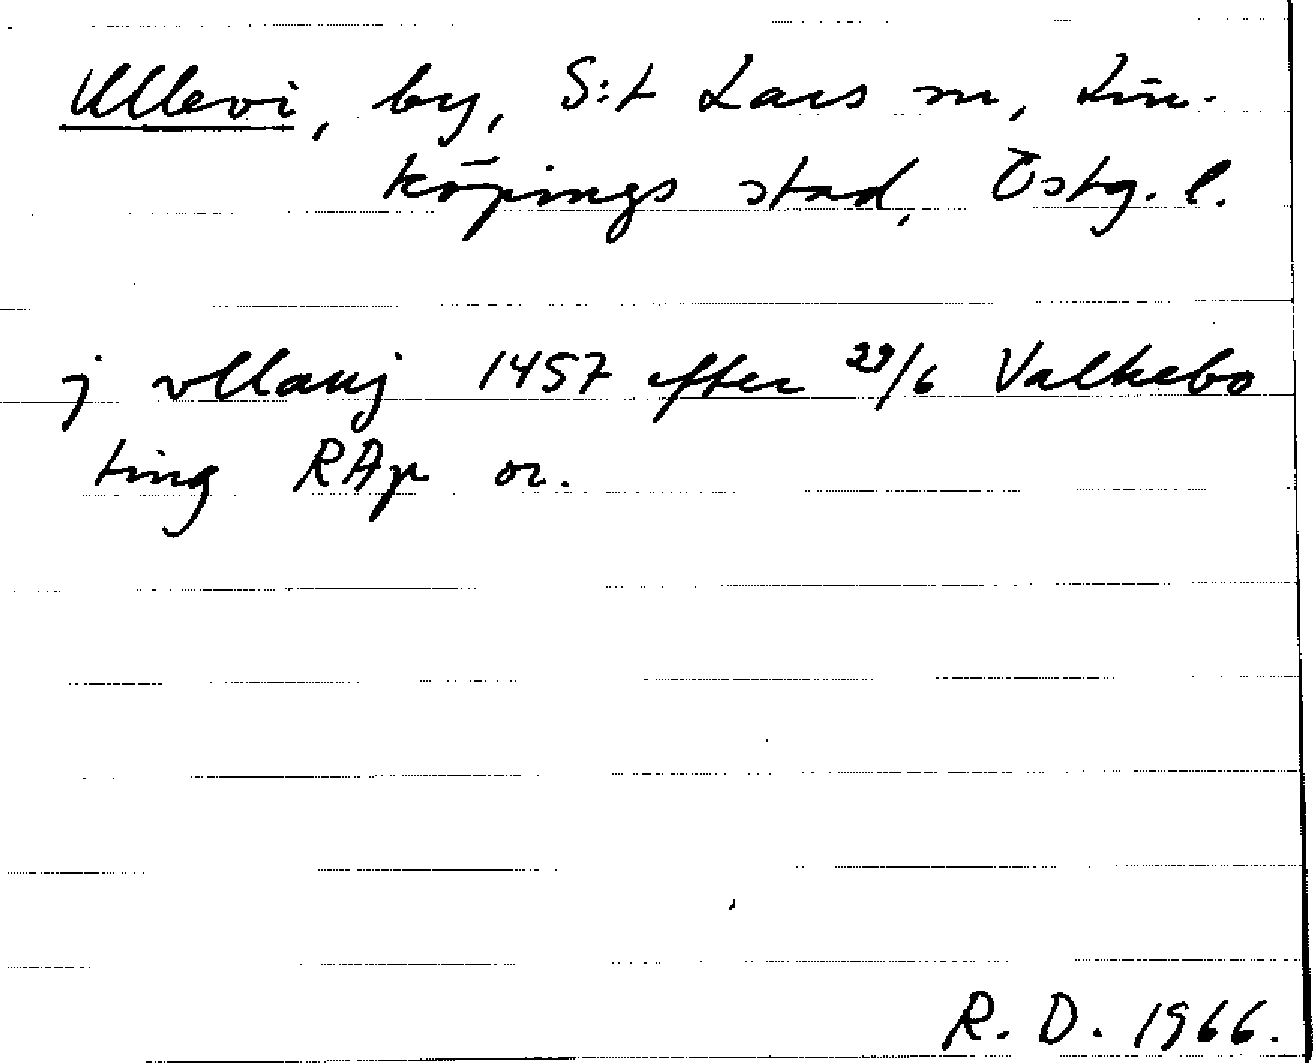 Ullevi, by, S:t Lars sn, Lin-
köpings stad, Östg. l.
j vllauj 1457 efter 29/6 Valkebo
ting RAp or.
R. D. 1966.